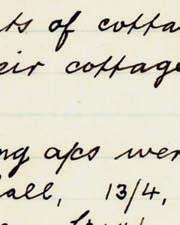 ts of cotta
eir cottage
ng a/cs wer
all, 13/4,